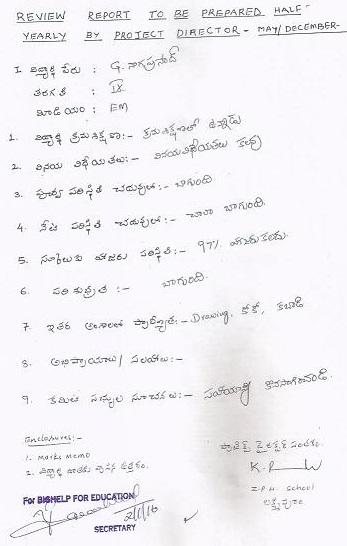 REVIEW REPORT TO BE PREPARED HALF-
YEARLY BY PROJECT DIRECTOR - MAY/DECEMBER-
I విద్యార్థి పేరు : G. నాగప్రసాద్
తరగతి : IX
మీడియం : EM
1. విద్యార్థి క్రమశిక్షణ:- క్రమశిక్షణలో ఉన్నాడు
2. వినయ విధేయతలు:- వినయవిధేయతలు కలవు
3. పూర్వ పరిస్థితి చదువులో:- బాగుంది
4. నేటి పరిస్థితి చదువులో:- చాలా బాగుంది.
5. స్కూలుకు హాజరు పరిస్థితి :- 97% హాజరుకలదు.
6. పరిశుభ్రత :- బాగుంది.
7. ఇతర అంశాలలో ప్రావీణ్యత:- Drawing, కోకో, కబాడి
8. అభిప్రాయాలు/సలహాలు:-
9. కమిటి సభ్యుల సూచనలు:- సహాయాన్ని కొనసాగించండి.
Enclosures:-
1. Marks Memo
2. విద్యార్థి జాతకు వ్రాసిన ఉత్తరం.
ప్రాజెక్ట్ డైరెక్టర్ సంతకం.
Z.P.H. School
లక్ష్మీపురం
For BIGHELP FOR EDUCATION
2/1/16
SECRETARY